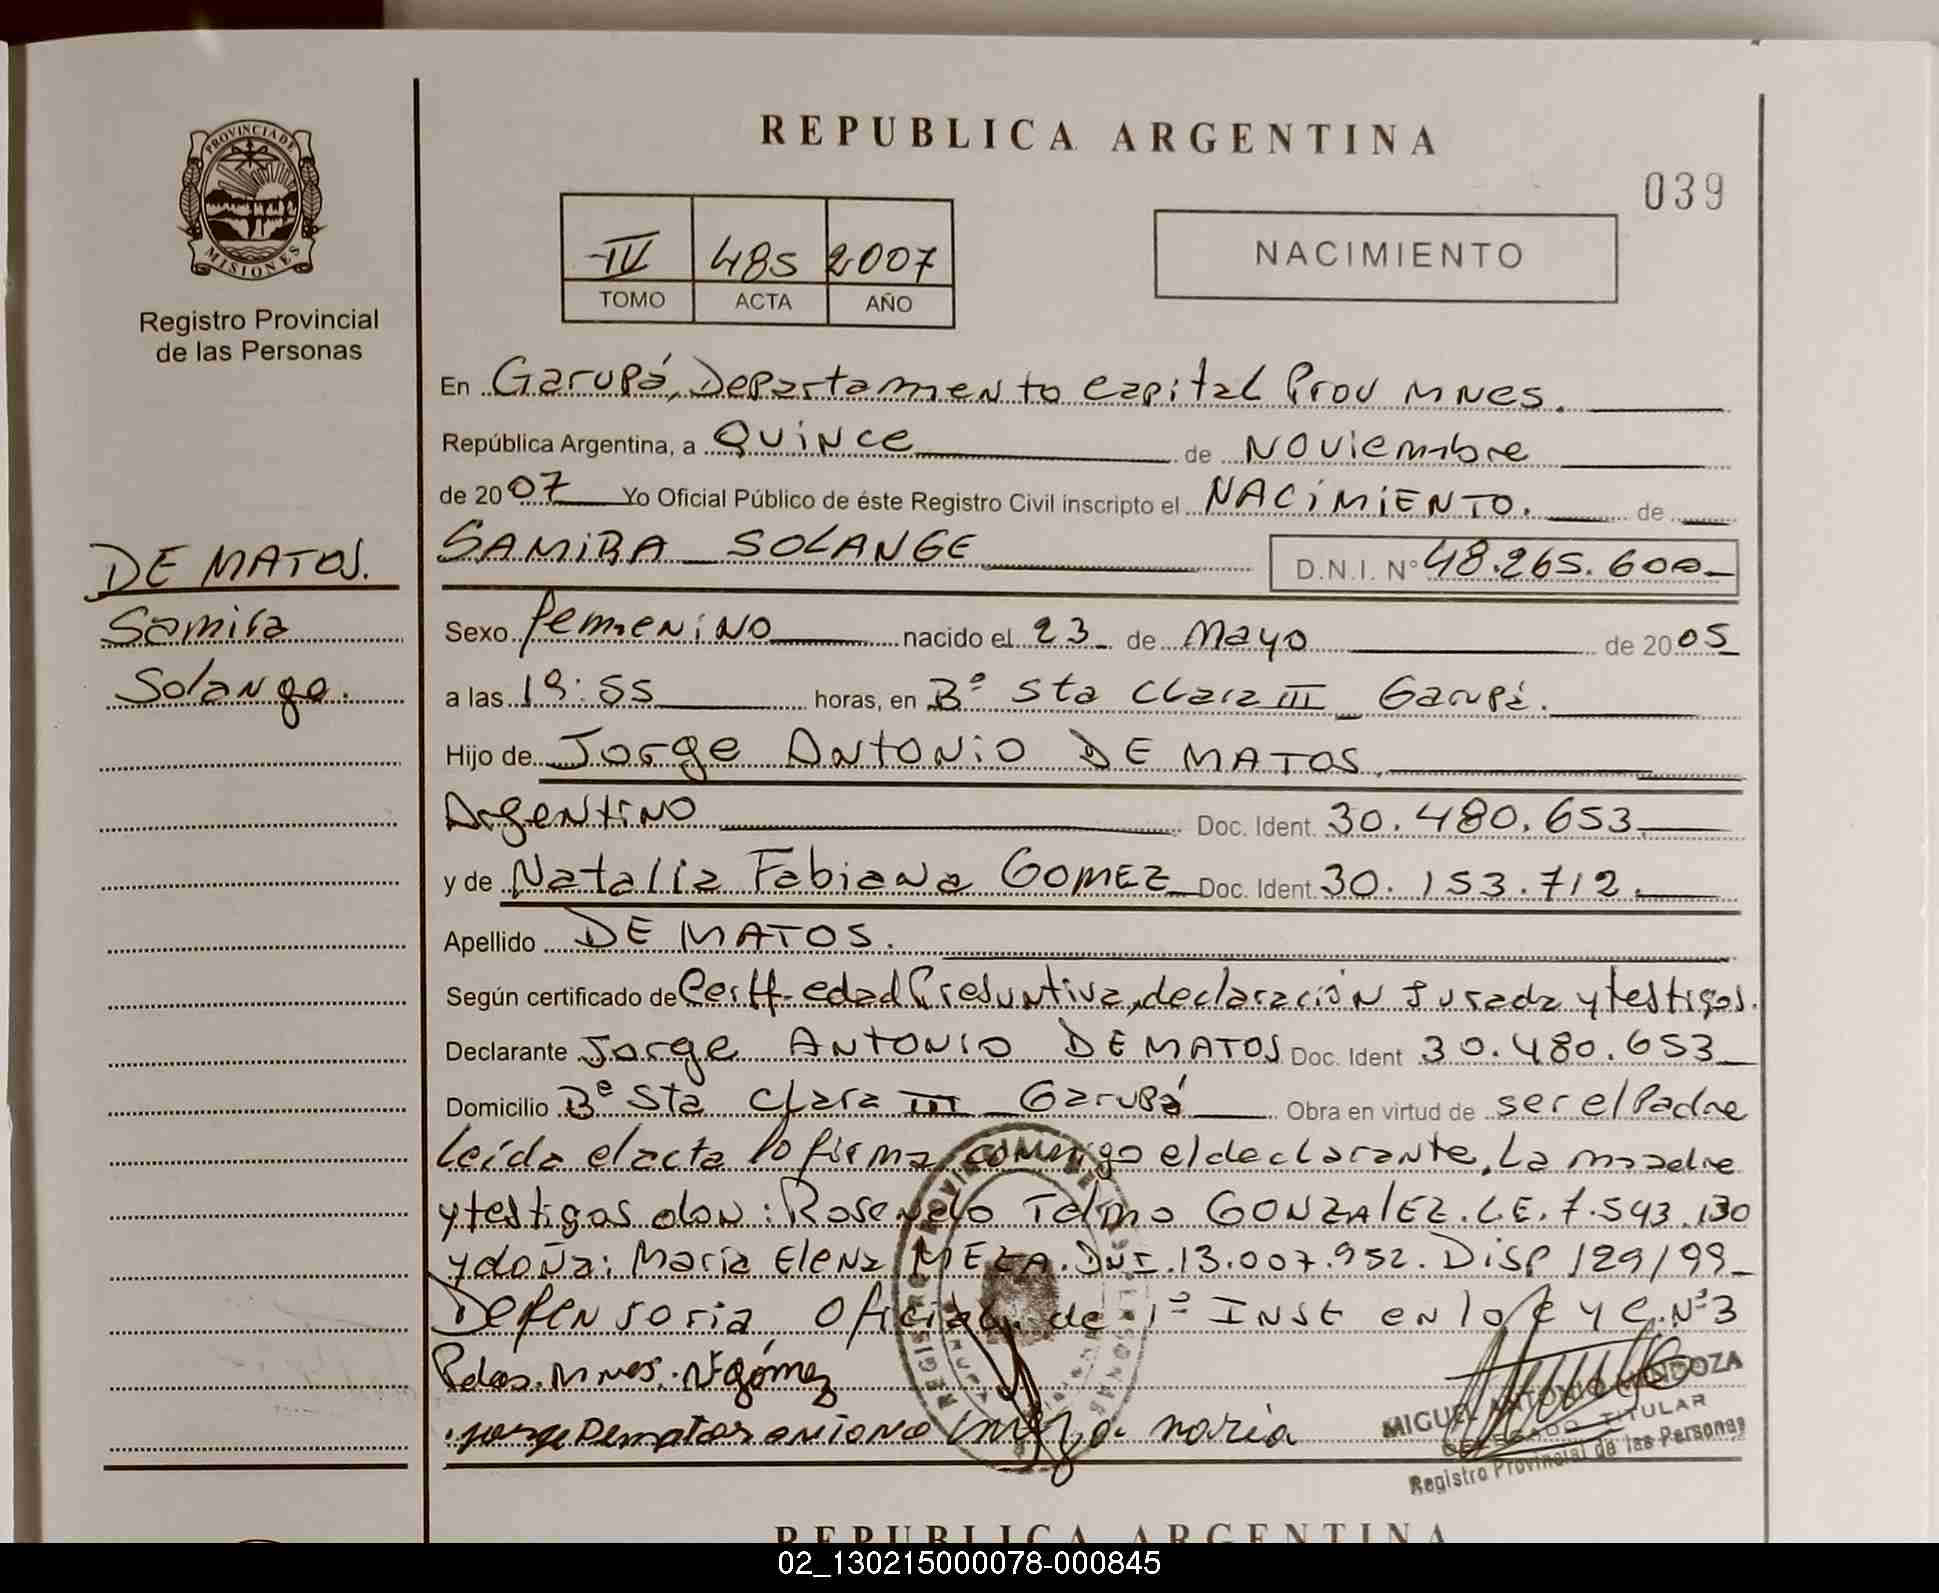 PROVINCIA DE
MISIONES
Registro Provincial
de las Personas
DE MATOS.
Samira
Solange.
REPUBLICA ARGENTINA
039
IV 485 2007
TOMO ACTA AÑO
NACIMIENTO
En Garupá, Departamento Capital Prov Mnes.
República Argentina, a Quince de Noviembre
de 2007 Yo Oficial Público de éste Registro Civil inscripto el NACIMIENTO. de
SAMIRA SOLANGE D.N.I. Nº 48.265.600
Sexo femenino nacido el 23 de Mayo de 2005
a las 19:55 horas, en Bº Sta Clara III Garupá.
Hijo de Jorge ANTONIO DE MATOS.
Argentino Doc. Ident. 30.480.653.
y de Natalia Fabiana GOMEZ Doc. Ident. 30.153.712.
Apellido DE MATOS.
Según certificado de Certf-edad Presuntiva, declaración Jurada y testigos.
Declarante Jorge ANTONIO DE MATOS Doc. Ident 30.480.653
Domicilio Bº Sta Clara III Garupá Obra en virtud de ser el Padre
Leída el acta lo firma conmigo el declarante, La madre
y testigos don: Rosendo Telmo GONZALEZ. L.E. 7.593.130
y doña: María Elena MEZA. DNI. 13.007.952. Disp 129/99
Defensoria Oficial de 1º Inst en lo C y C. Nº3
Pdas. Mnes. N F gómez
jorge Dematos antonio meza maria
MIGUEL ANTONIO MENDOZA
DELEGADO TITULAR
Registro Provincial de las Personas
REPUBLICA ARGENTINA
02_130215000078-000845